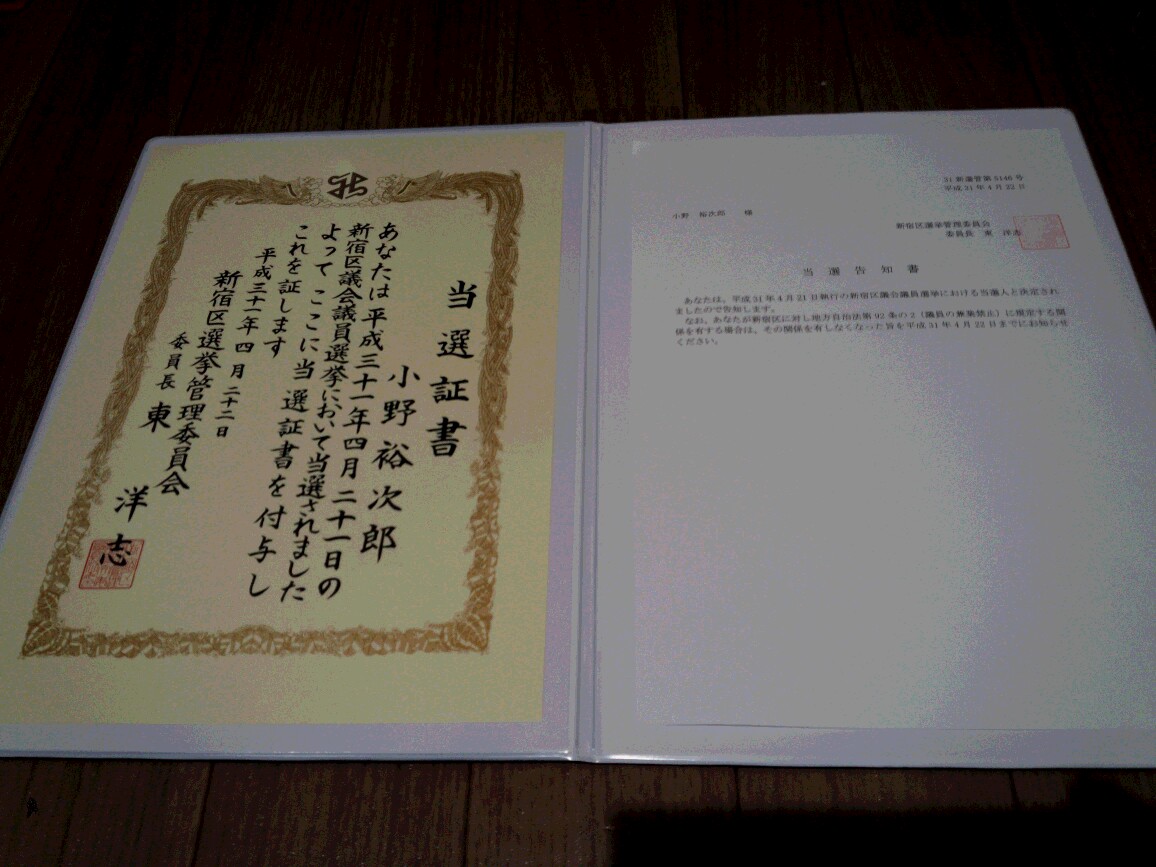 当選証書
小野裕次郎
あなたは平成三十一年四月二十一日の
新宿区議会議員選挙において当選されました
よってここに当選証書を付与し
これを証します
平成三十一年四月二十二日
新宿区選挙管理委員会
委員長 東 洋志
31新選管第5146号
平成31年4月22日
小野 裕次郎 様
新宿区選挙管理委員会
委員長 東 洋志
当選告知書
あなたは、平成31年4月21日執行の新宿区議会議員選挙における当選人と決定され
ましたので告知します。
なお、あなたが新宿区に対し地方自治法第92条の2（議員の兼業禁止）に規定する関
係を有する場合は、その関係を有しなくなった旨を平成31年4月22日までにお知らせ
ください。